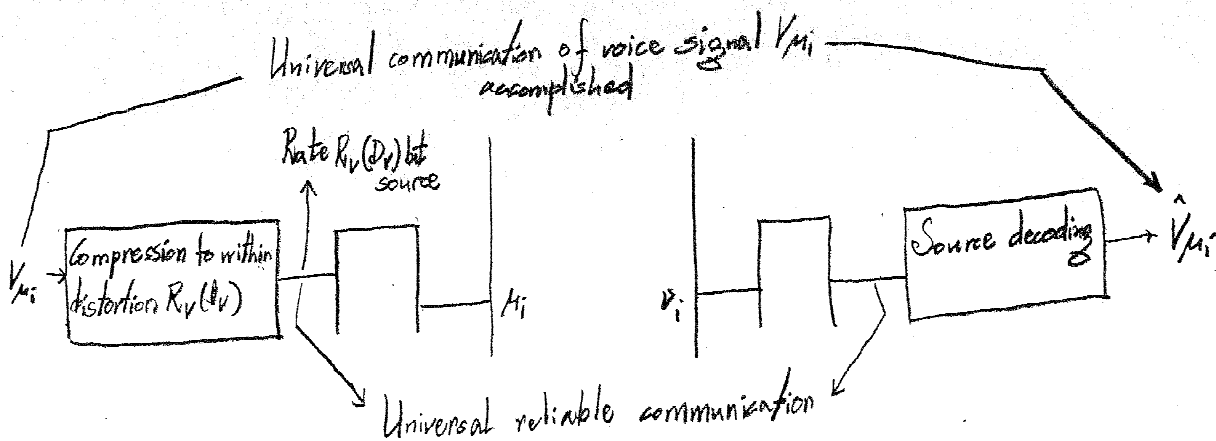 Universal communication of voice signal V_{μ_i}
accomplished
Rate R_V(D_V) bit
source
V_{μ_i}
Compression to within
distortion R_V(D_V)
μ_i
ν_i
Source decoding
V̂_{μ_i}
Universal reliable communication